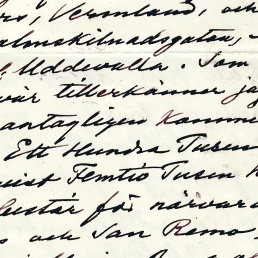 rs, Vermland, och
almskilnadsgatan,
Uddevalla. Som
vår tillerkänner ja
antagligen komme
Ett Hundra Tusen
vist Femtio Tusen K
består för närvara
s och San Remo